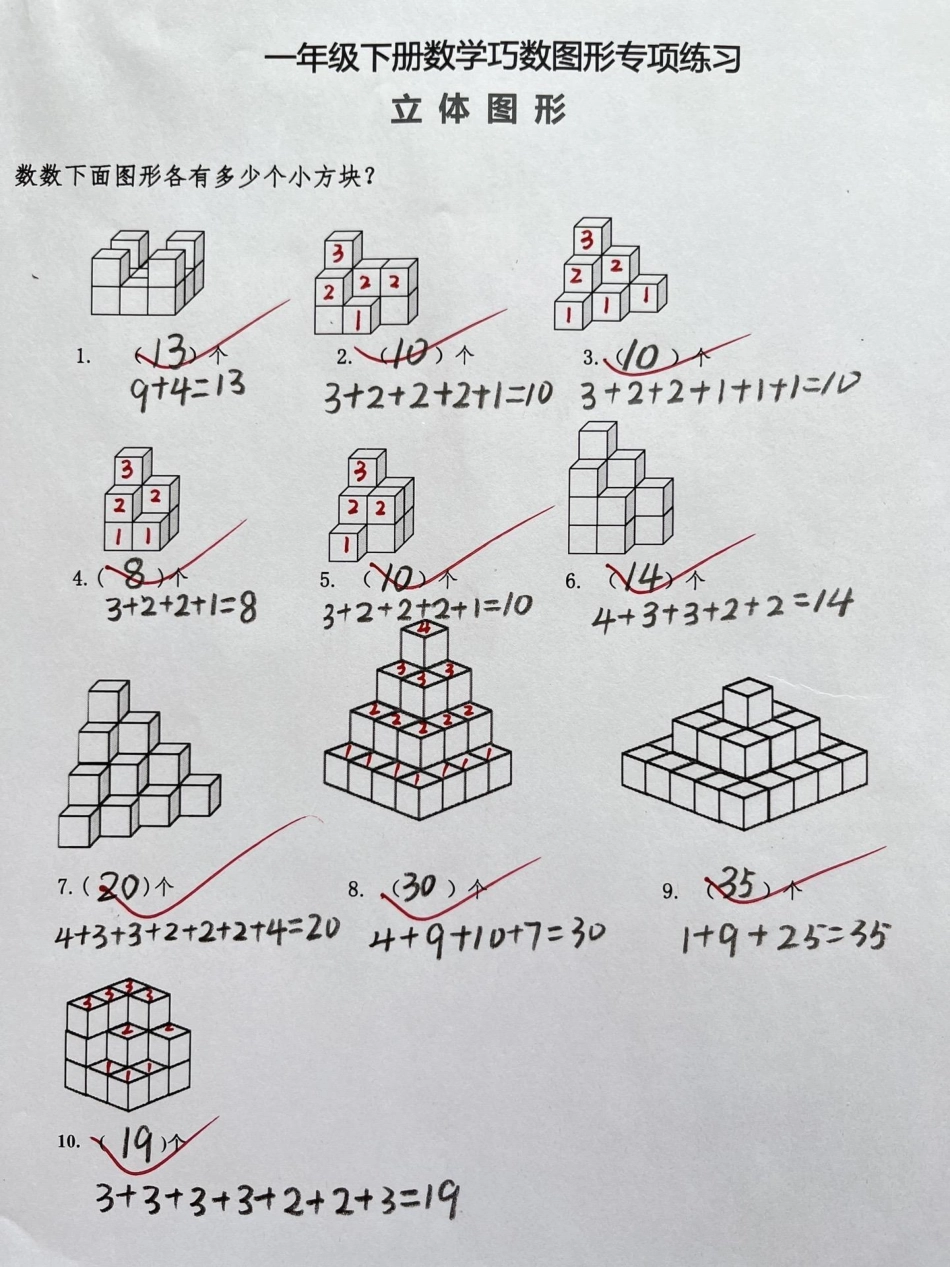 一年级下册数学巧数图形专项练习
立体图形
数数下面图形各有多少个小方块?
3
2 2 2
1
3
2 2
1 1 1
1. (13)个
2. (10)个
3. (10)个
9+4=13
3+2+2+2+1=10
3+2+2+1+1+1=10
3
2 2
1 1
3
2 2
1
4. (8)个
5. (10)个
6. (14)个
3+2+2+1=8
3+2+2+2+1=10
4+3+3+2+2=14
4
3 3 3
2 2 2 2 2
1 1 1 1 1 1 1
7. (20)个
8. (30)个
9. (35)个
4+3+3+2+2+2+4=20
4+9+10+7=30
1+9+25=35
3 3 3 3
2 2
1 1 1
10. (19)个
3+3+3+3+2+2+3=19